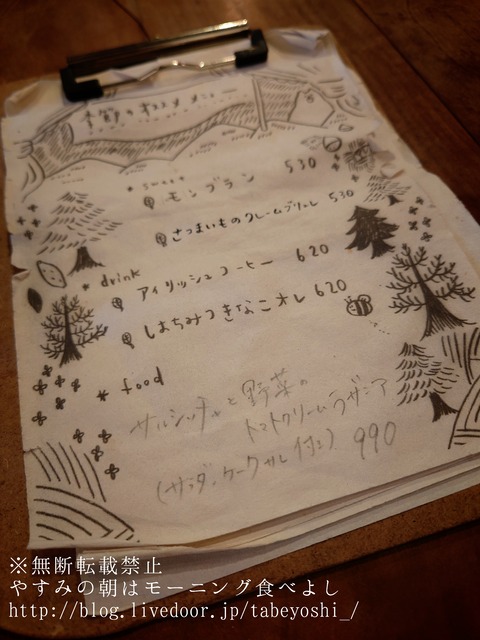 季節のおすすめメニュー
* sweet
モンブラン 530
さつまいものクレームブリュレ 530
* drink
アイリッシュコーヒー 620
はちみつきなこオレ 620
* food
サルシッチャと野菜の
トマトクリームラザニア
(サラダ、ケークサレ付き) 990
※無断転載禁止
やすみの朝はモーニング食べよし
http://blog.livedoor.jp/tabeyoshi_/